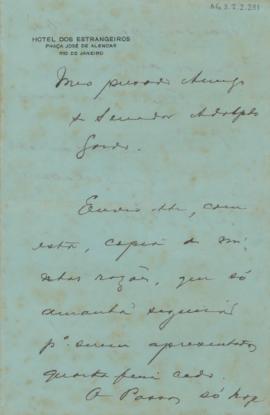 AG 3.2.2.291
HOTEL DOS ESTRANGEIROS
PRAÇA JOSÉ DE ALENCAR
RIO DE JANEIRO
Meu presado Amigo
Senador Adolpho
Gordo.
Envio-lhe, com
esta, copia de mi-
nhas razões, que só
amanhã seguirá
pª. serem apresentadas
quarta feira cedo.
O só hoje